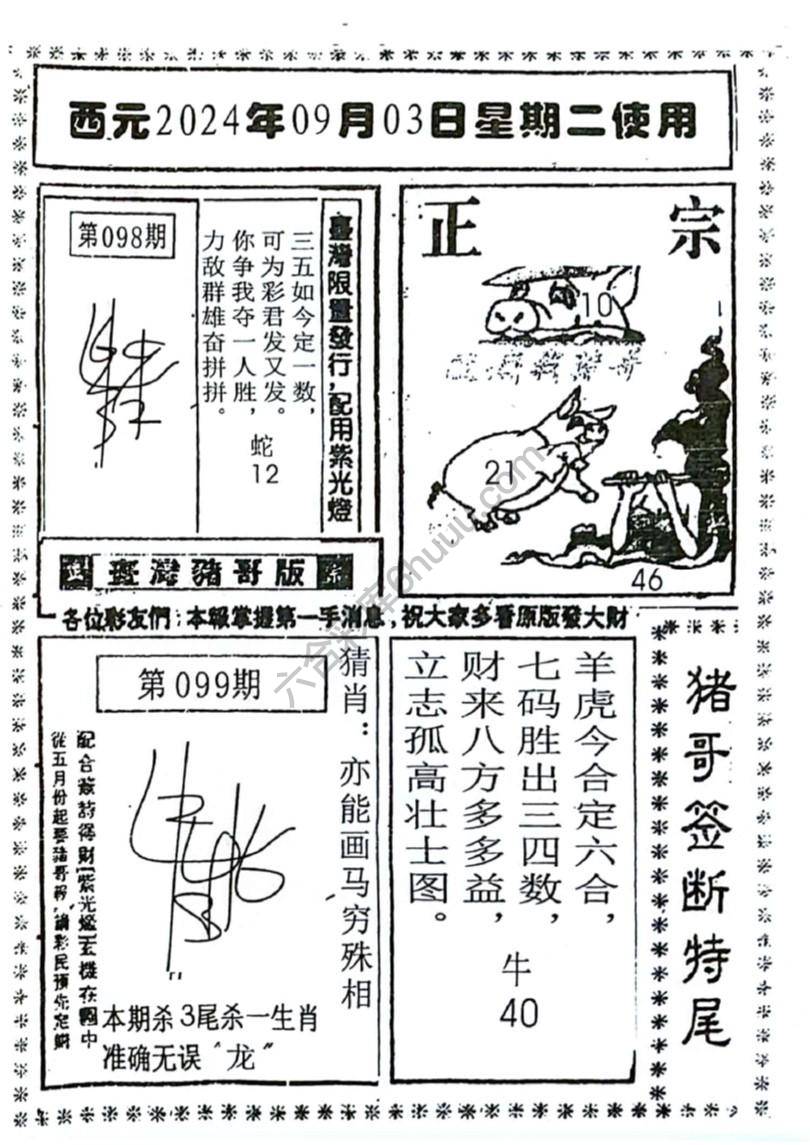 西元2024年09月03日星期二使用
第098期
臺灣限量發行,配用紫光燈
三五如今定一数,
可为彩君发又发。
你争我夺一人胜,
力敌群雄奋拼拼。
蛇
12
正宗
10
21
46
臺灣豬哥版
各位彩友們:本報掌握第一手消息,祝大家多看原版發大財
第099期
猜肖:亦能画马穷殊相
從五月份起要豬哥報,請彩民預先定購
本期杀3尾杀一生肖
准确无误“龙”
羊虎今合定六合,
七码胜出三四数,
财来八方多多益,
立志孤高壮士图。
牛
40
猪哥签断特尾
六合彩库6huuu.com